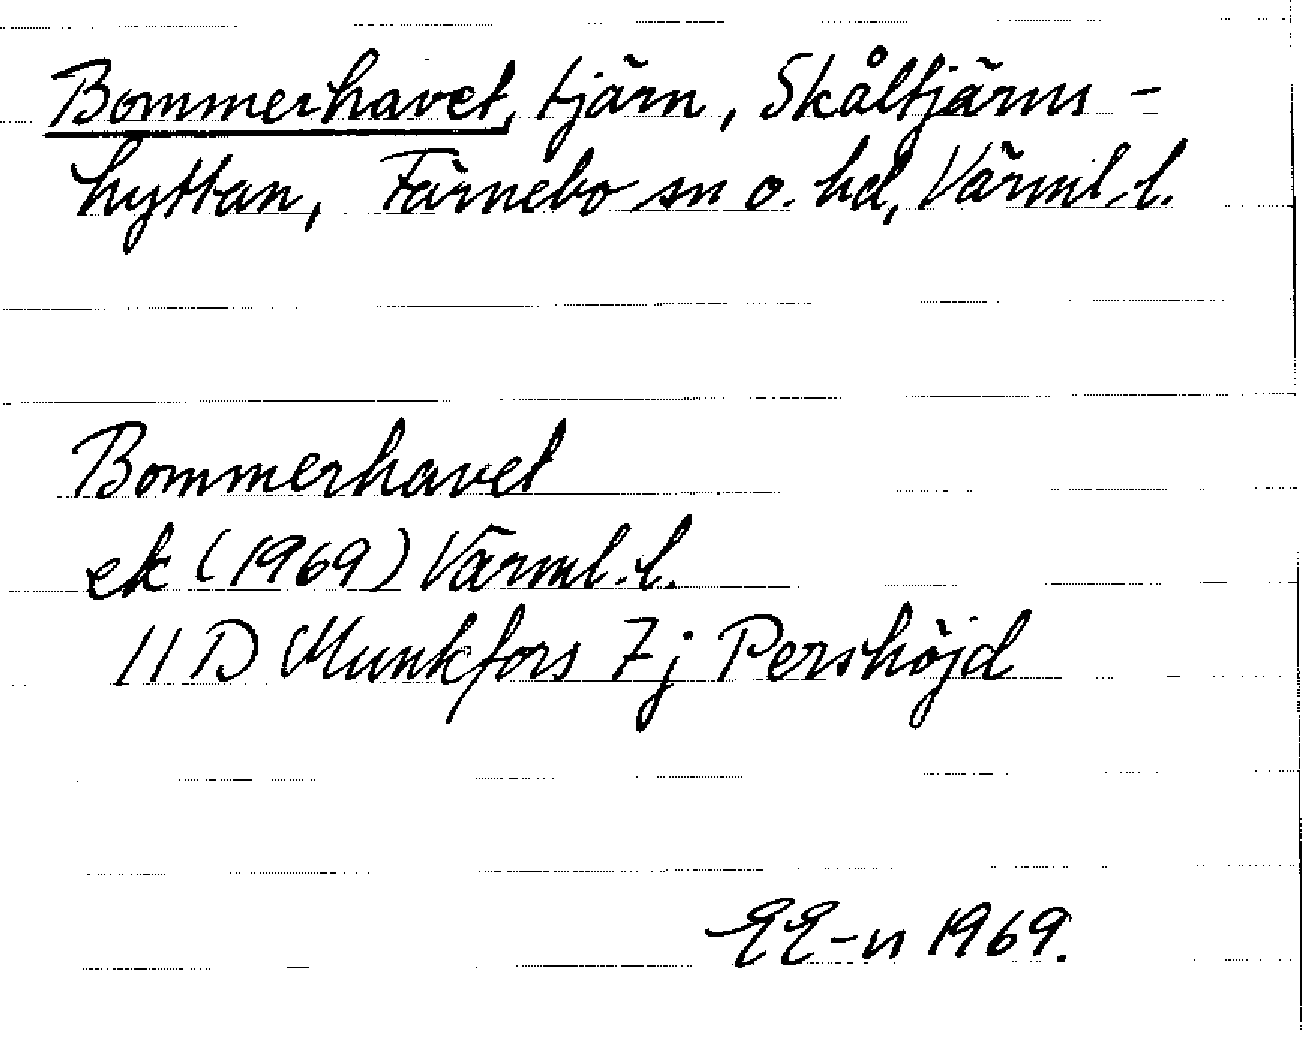 Bommerhavet, tjärn, Skåltjärns-
hyttan, Färnebo sn o. hd, Värml. l.
Bommerhavet
ek (1969) Värml. l.
11 D Munkfors 7j Pershöjd
EE-n 1969.